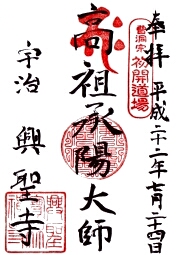 奉拝
平成二十二年七月二十四日
曹洞宗
初開道場
高祖承陽大師
宇治 興聖寺